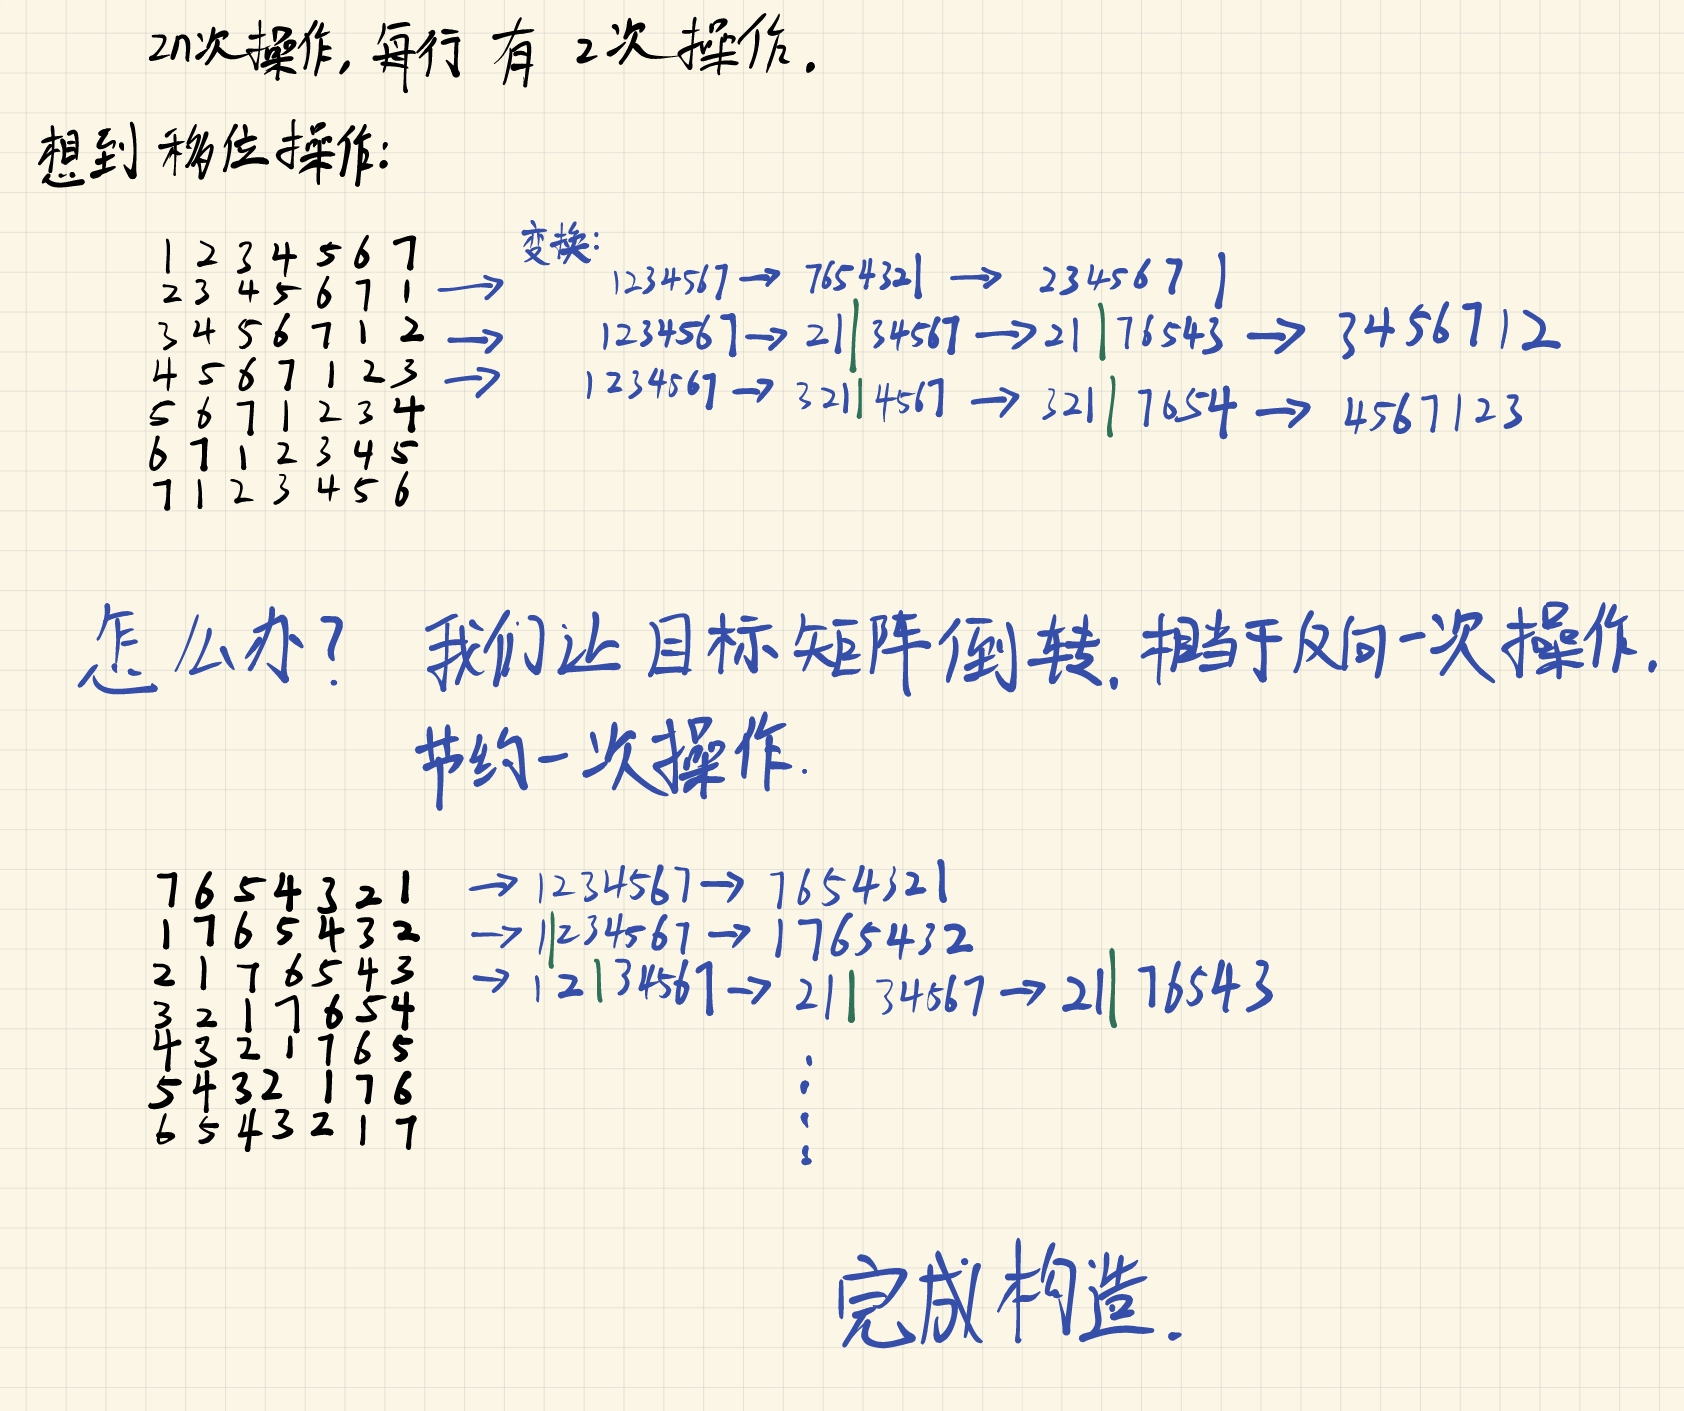 2n次操作, 每行 有 2次操作.
想到 移位操作:
变换:
1 2 3 4 5 6 7
2 3 4 5 6 7 1 → 1234567 → 7654321 → 234567 1
3 4 5 6 7 1 2 → 1234567 → 21|34567 → 21|76543 → 3456712
4 5 6 7 1 2 3 → 1234567 → 321|4567 → 321|7654 → 4567123
5 6 7 1 2 3 4
6 7 1 2 3 4 5
7 1 2 3 4 5 6
怎么办? 我们让目标矩阵倒转. 相当于反向一次操作.
节约一次操作.
7 6 5 4 3 2 1 → 1234567 → 7654321
1 7 6 5 4 3 2 → 1|234567 → 1765432
2 1 7 6 5 4 3 → 12|34567 → 21|34567 → 21|76543
3 2 1 7 6 5 4
4 3 2 1 7 6 5
5 4 3 2 1 7 6
6 5 4 3 2 1 7
完成构造.